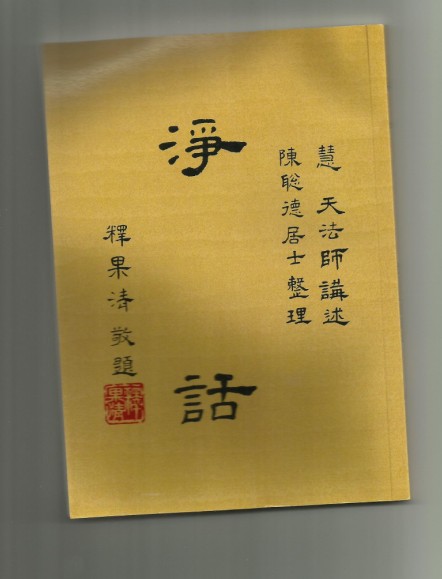 慧天法師講述
陳聡德居士整理
淨話
釋果清敬題